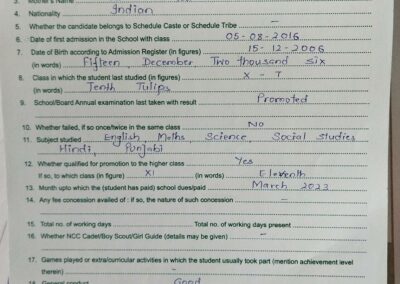 3. Mother's Name
4. Nationality Indian
5. Whether the candidate belongs to Schedule Caste or Schedule Tribe –
6. Date of first admission in the School with class 05-08-2016
7. Date of Birth according to Admission Register (in figures) 15-12-2006
(in words) Fifteen, December, Two thousand six
8. Class in which the student last studied (in figures) X - T
(in words) Tenth Tulips
9. School/Board Annual examination last taken with result Promoted
10. Whether failed, if so once/twice in the same class NO
11. Subject studied English, Maths, Science, Social studies
Hindi, Punjabi
12. Whether qualified for promotion to the higher class Yes
If so, to which class (in figure) XI (in words) Eleventh
13. Month upto which the (student has paid) school dues/paid March 2023
14. Any fee concession availed of : if so, the nature of such concession –
15. Total no. of working days Total no. of working days present
16. Whether NCC Cadet/Boy Scout/Girl Guide (details may be given) –
17. Games played or extra/curricular activities in which the student usually took part (mention achievement level
therein) –
18. General conduct Good